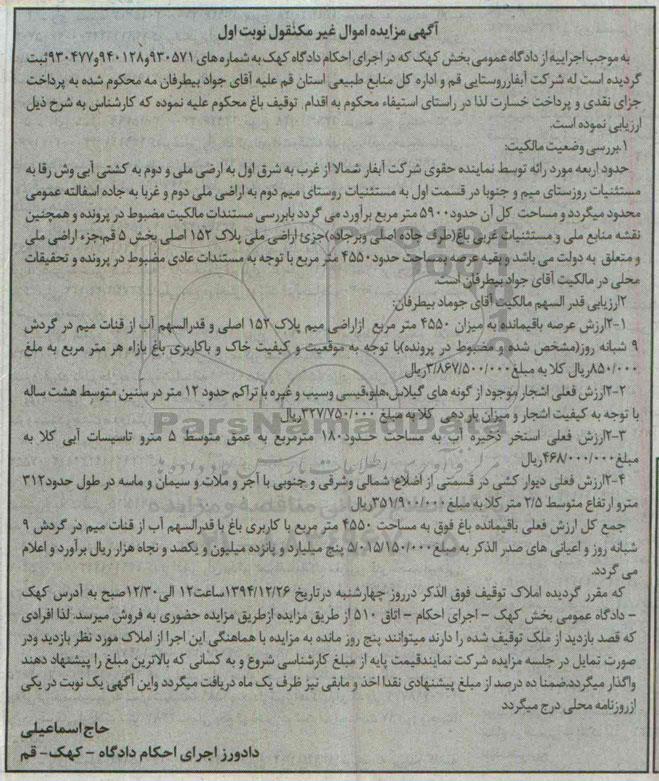 آگهی مزایده اموال غیر مکنقول نوبت اول
به موجب اجراییه از دادگاه عمومی بخش کهک که در اجرای احکام دادگاه کهک به شماره های ۹۳۰۵۷۱و۹۴۰۱۲۸و۹۳۰۴۷۷ثبت
گردیده است له شرکت آبفارروستایی قم و اداره کل منابع طبیعی استان قم علیه آقای جواد بیطرفان مه محکوم شده به پرداخت
جزای نقدی و پرداخت خسارت لذا در راستای استیفاء محکوم به اقدام توقیف باغ محکوم علیه نموده که کارشناس به شرح ذیل
ارزیابی نموده است.
۱.بررسی وضعیت مالکیت:
حدود اربعه مورد رائه توسط نماینده حقوی شرکت آبفار شمالا از غرب به شرق اول به ارضی ملی و دوم به کشتی آبی وش رقا به
مستثنیات روزستای میم و جنوبا در قسمت اول به مستثنیات روستای میم دوم به اراضی ملی دوم و غربا به جاده اسفالته عمومی
محدود میگردد و مساحت کل آن حدود۵۹۰۰ متر مربع برآورد می گردد بابررسی مستندات مالکیت مضبوط در پرونده و همچنین
نقشه منابع ملی و مستثنیات غربی باغ(طرف جاده اصلی وبرجاده)جزئ اراضی ملی پلاک ۱۵۲ اصلی بخش ۵ قم،جزء اراضی ملی
و متعلق به دولت می باشد و بقیه عرصه بمساحت حدود ۴۵۵۰ متر مربع با توجه به مستندات عادی مضبوط در پرونده و تحقیقات
محلی در مالکیت آقای جواد بیطرفان است.
۲ارزیابی قدر السهم مالکیت آقای جوماد بیطرفان:
۲-۱ارزش عرصه باقیمانده به میزان ۴۵۵۰ متر مربع ازاراضی میم پلاک ۱۵۲ اصلی و قدرالسهم آب از قنات میم در گردش
۹ شبانه روز(مشخص شده و مضبوط در پرونده)با توجه به موقعیت و کیفیت خاک و باکاربری باغ بازاء هر متر مربع به ملغ
۸۵۰/۰۰۰ریال کلا به مبلغ۳/۸۶۷/۵۰۰/۰۰۰ریال
۲-۲ارزش فعلی اشجار موجود از گونه های گیلاس،هلو،قیسی وسیب و غیره با تراکم حدود ۱۲ متر در سنین متوسط هشت ساله
با توجه به کیفیت اشجار و میزان بار دهی کلا به مبلغ ۳۲۷/۷۵۰/۰۰۰ریال
۲-۳ارزش فعلی استخر ذخیره آب به مساحت حدود۱۸۰ مترمربع به عمق متوسط ۵ مترو تاسیسات آبی کلا به
مبلغ۴۶۸/۰۰۰/۰۰۰ریال
۲-۴ارزش فعلی دیوار کشی در قسمتی از اضلاع شمالی وشرقی و جنوبی با آجر و ملات و سیمان و ماسه در طول حدود۳۱۲
مترو ارتفاع متوسط ۲/۵ متر کلا به مبلغ ۳۵۱/۹۰۰/۰۰۰ریال
جمع کل ارزش فعلی باقیمانده باغ فوق به مساحت ۴۵۵۰ متر مربع با کاربری باغ با قدرالسهم آب از قنات میم در گردش ۹
شبانه روز و أعیانی های صدر الذکر به مبلغ ۵/۰۱۵/۱۵۰/۰۰۰ پنج میلیارد و پانزده میلیون و یکصد و نجاه هزار ریال برآورد و اعلام
می گردد.
که مقرر گردیده املاک توقیف فوق الذکر درروز چهارشنبه درتاریخ ۱۳۹۴/۱۲/۲۶ساعت۱۲ الی۱۲/۳۰صبح به آدرس کهک
– دادگاه عمومی بخش کهک – اجرای احکام – اتاق ۵۱۰ از طریق مزایده ازطریق مزایده حضوری به فروش میرسد. لذا افرادی
که قصد بازدید از ملک توقیف شده را دارند میتوانند پنج روز مانده به مزایده با هماهنگی این اجرا از املاک مورد نظر بازدید ودر
صورت تمایل در جلسه مزایده شرکت نمایندقیمت پایه از مبلغ کارشناسی شروع و به کسانی که بالاترین مبلغ را پیشنهاد دهند
واگذار میگردد.ضمنا ده درصد از مبلغ پیشنهادی نقدا اخذ و مابقی نیز ظرف یک ماه دریافت میگردد واین آگهی یک نوبت در یکی
ازروزنامه محلی درج میگردد
حاج اسماعیلی
دادورز اجرای احکام دادگاه – کهک- قم
ParsNamadData